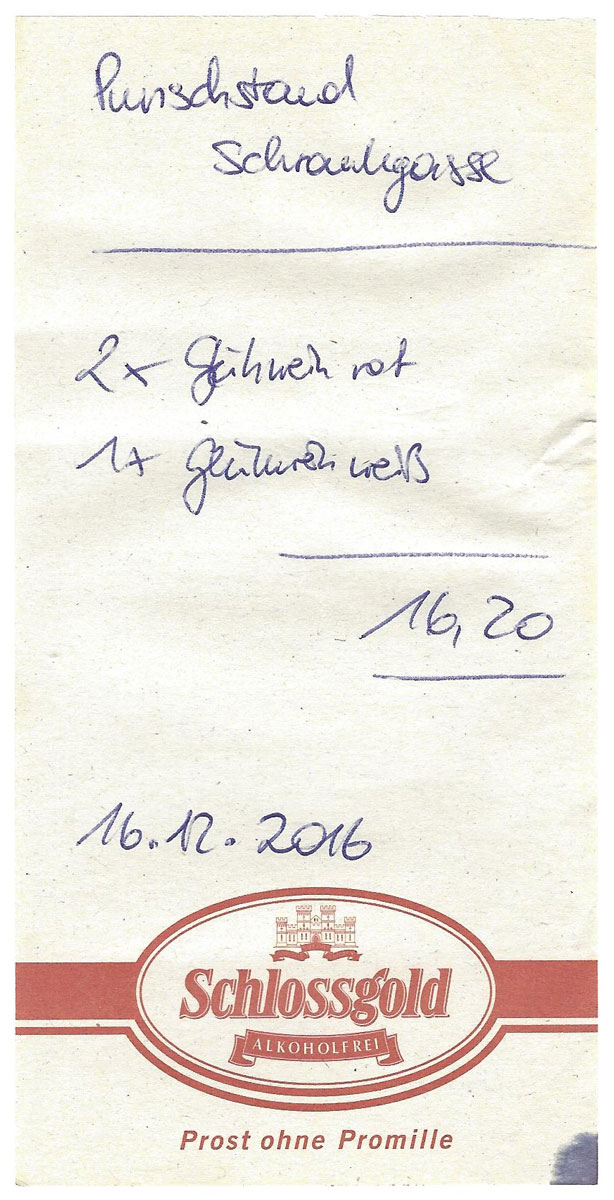 Punschstand
Schrankgasse
2x Glühwein rot
1x Glühwein weiß
16,20
16.12.2016
Schlossgold
ALKOHOLFREI
Prost ohne Promille